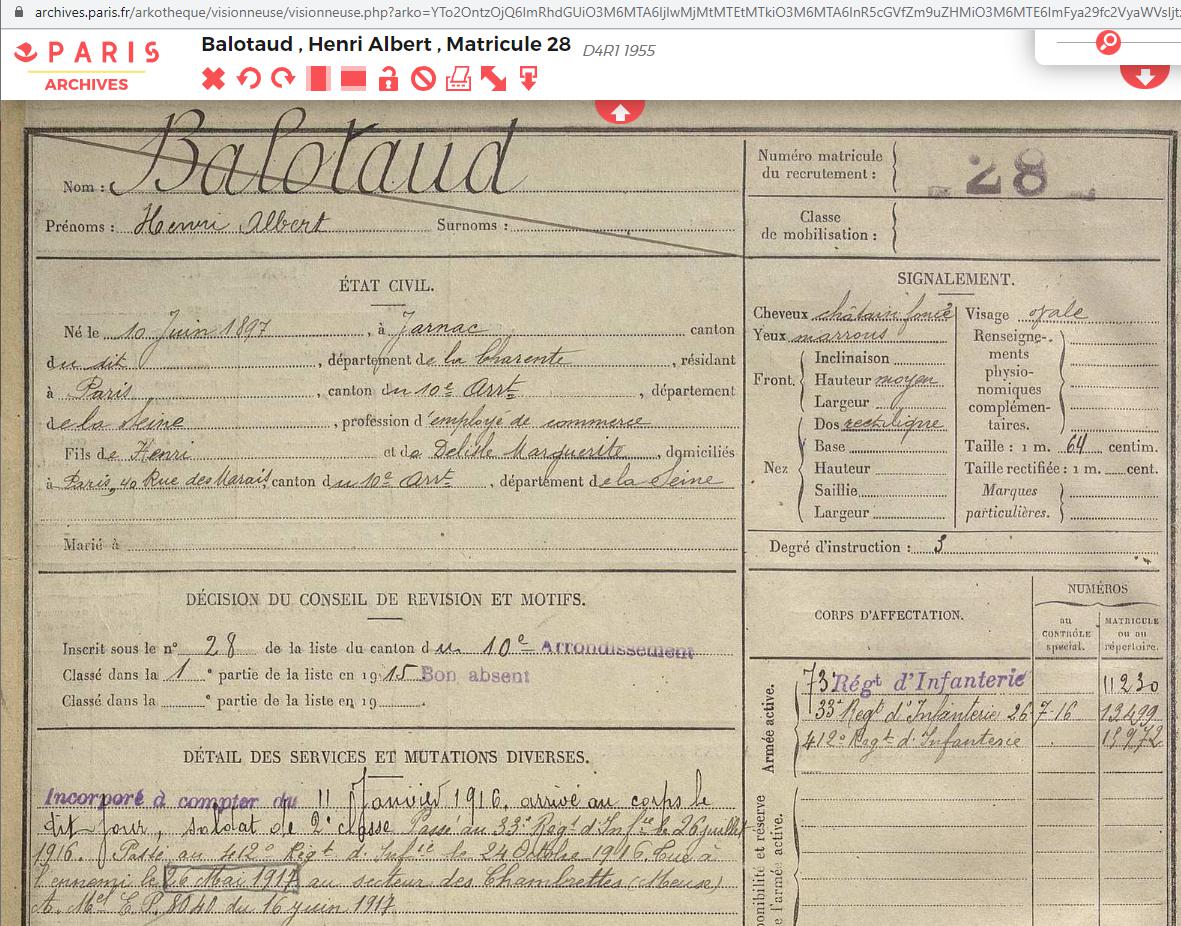 archives.paris.fr/arkotheque/visionneuse/visionneuse.php?arko=
PARIS
ARCHIVES
Balotaud , Henri Albert , Matricule 28 D4R1 1955
Nom : Balotaud
Prénoms : Henri Albert Surnoms :
Numéro matricule
du recrutement : 28
Classe
de mobilisation :
ÉTAT CIVIL.
Né le 10 Juin 1897, à Jarnac canton
du dit, département de la Charente, résidant
à Paris, canton du 10e Arrt, département
de la Seine, profession d'employé de commerce
Fils de Henri et de Delisle Marguerite, domiciliés
à Paris, 40 Rue des Marais, canton du 10e Arrt, département de la Seine
Marié à
SIGNALEMENT.
Cheveux châtain foncé
Yeux marrons
Front.
Inclinaison
Hauteur moyen
Largeur
Nez
Dos rectiligne
Base
Hauteur
Saillie
Largeur
Visage ovale
Renseigne-
ments
physio-
nomiques
complémen-
taires.
Taille : 1 m. 64 centim.
Taille rectifiée : 1 m. cent.
Marques
particulières.
Degré d'instruction : 3
DÉCISION DU CONSEIL DE REVISION ET MOTIFS.
Inscrit sous le n° 28 de la liste du canton du 10e Arrondissement
Classé dans la 1e partie de la liste en 1915 Bon absent
Classé dans la e partie de la liste en 19 .
CORPS D'AFFECTATION.
NUMÉROS
au
CONTRÔLE
spécial.
MATRICULE
ou au
répertoire.
Armée active.
73 Régt d'Infanterie 11230
33e Regt d'Infanterie 26 7 16 13499
412e Regt d'Infanterie
ponibilité et réserve
e l'armée active.
DÉTAIL DES SERVICES ET MUTATIONS DIVERSES.
Incorporé à compter du 11 Janvier 1916. arrivé au corps le
dit jour, soldat de 2e classe Passé au 33e Regt d'Infie le 26 juillet
1916. Passé au 412e Regt d'Infie le 24 Octobre 1916. Tué à
l'ennemi le 26 Mai 1917 au secteur des Chambrettes (Meuse)
A. Mel C.P. 8040 du 16 juin 1917